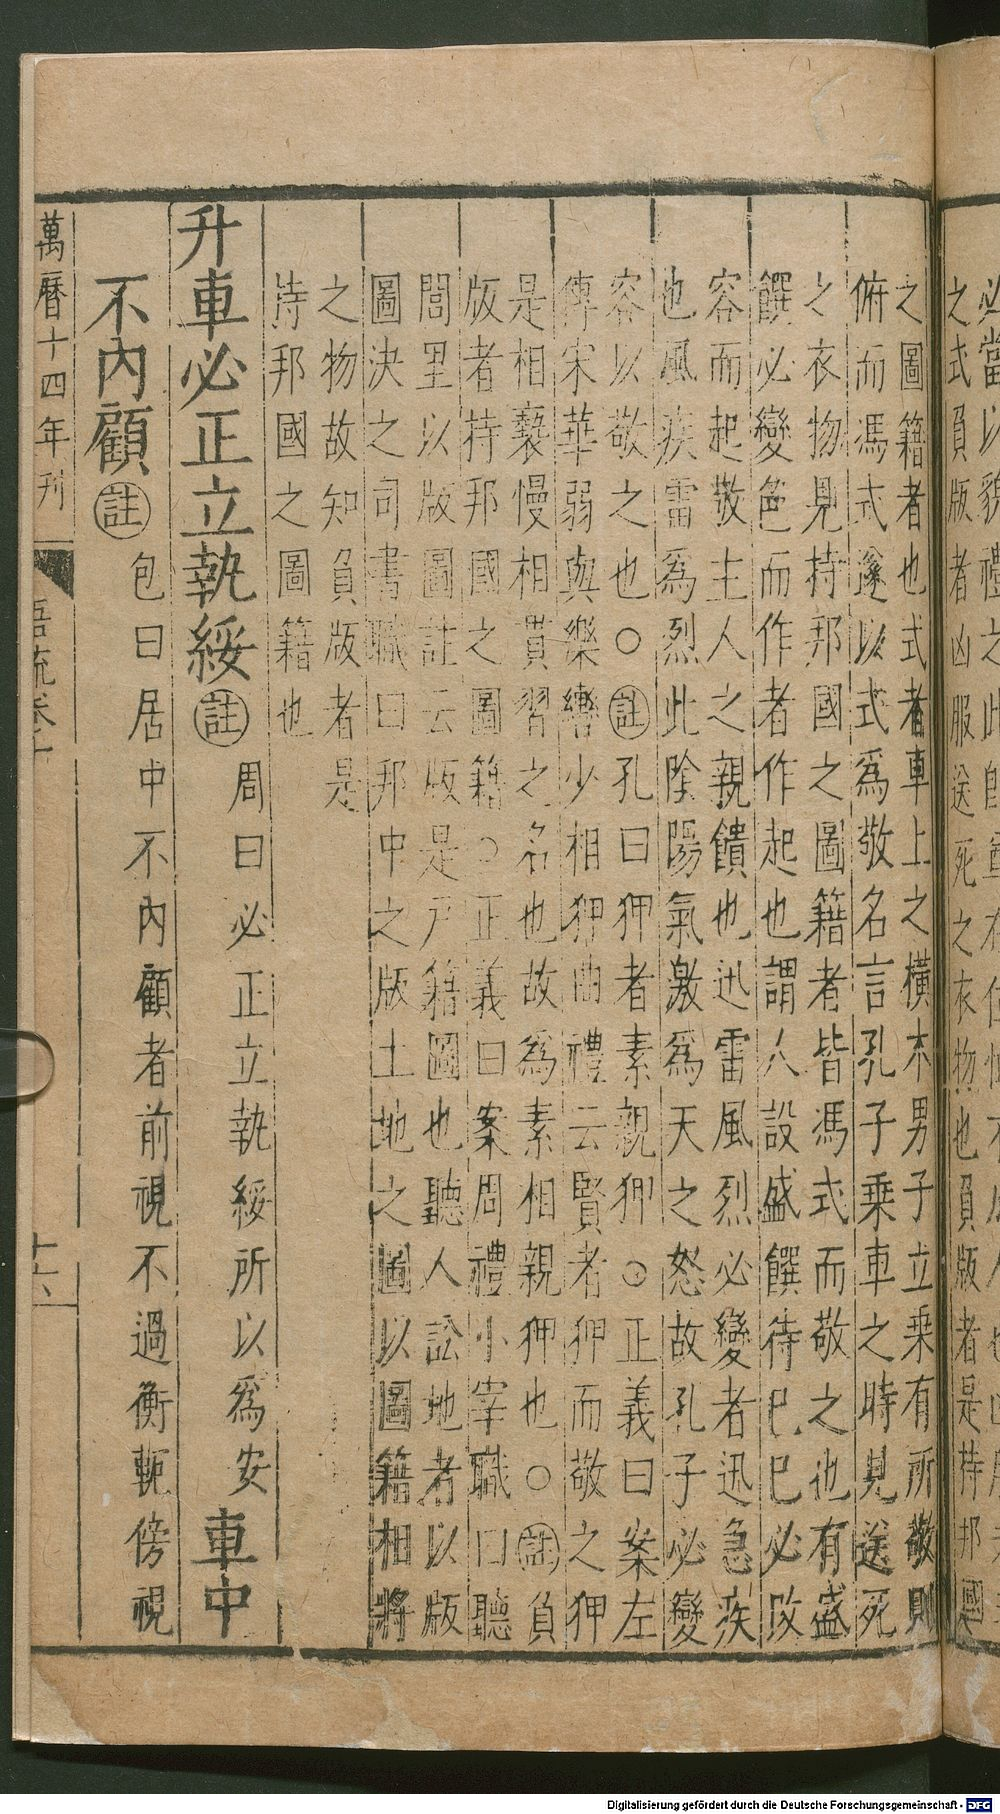 必當以貌禮之此即
之式負版者凶服送死之衣物也負版者是持邦國
之圖籍者也式者車上之橫木男子立乘有所敬則
俯而馮式遂以式爲敬名言孔子乘車之時見送死
之衣物見持邦國之圖籍者皆馮式而敬之也有盛
饌必變色而作者作起也謂人設盛饌待己己必改
容而起敬主人之親饋也迅雷風烈必變者迅急疾
也風疾雷爲烈此陰陽氣激爲天之怒故孔子必變
容以敬之也○註孔曰狎者素親狎○正義曰案左
傳宋華弱與樂轡少相狎曲禮云賢者狎而敬之狎
是相褻慢相貫習之名也故爲素相親狎也○註負
版者持邦國之圖籍○正義曰案周禮小宰職曰聽
閭里以版圖註云版是戸籍圖也聽人訟地者以版
圖決之司書職曰邦中之版土地之圖以圖籍相將
之物故知負版者是
持邦國之圖籍也
升車必正立執綏註周曰必正立執綏所以爲安車中
不內顧註包曰居中不內顧者前視不過衡軛傍視
萬曆十四年刊 吾疏卷十 十六
Digitalisierung gefördert durch die Deutsche Forschungsgemeinschaft - DFG